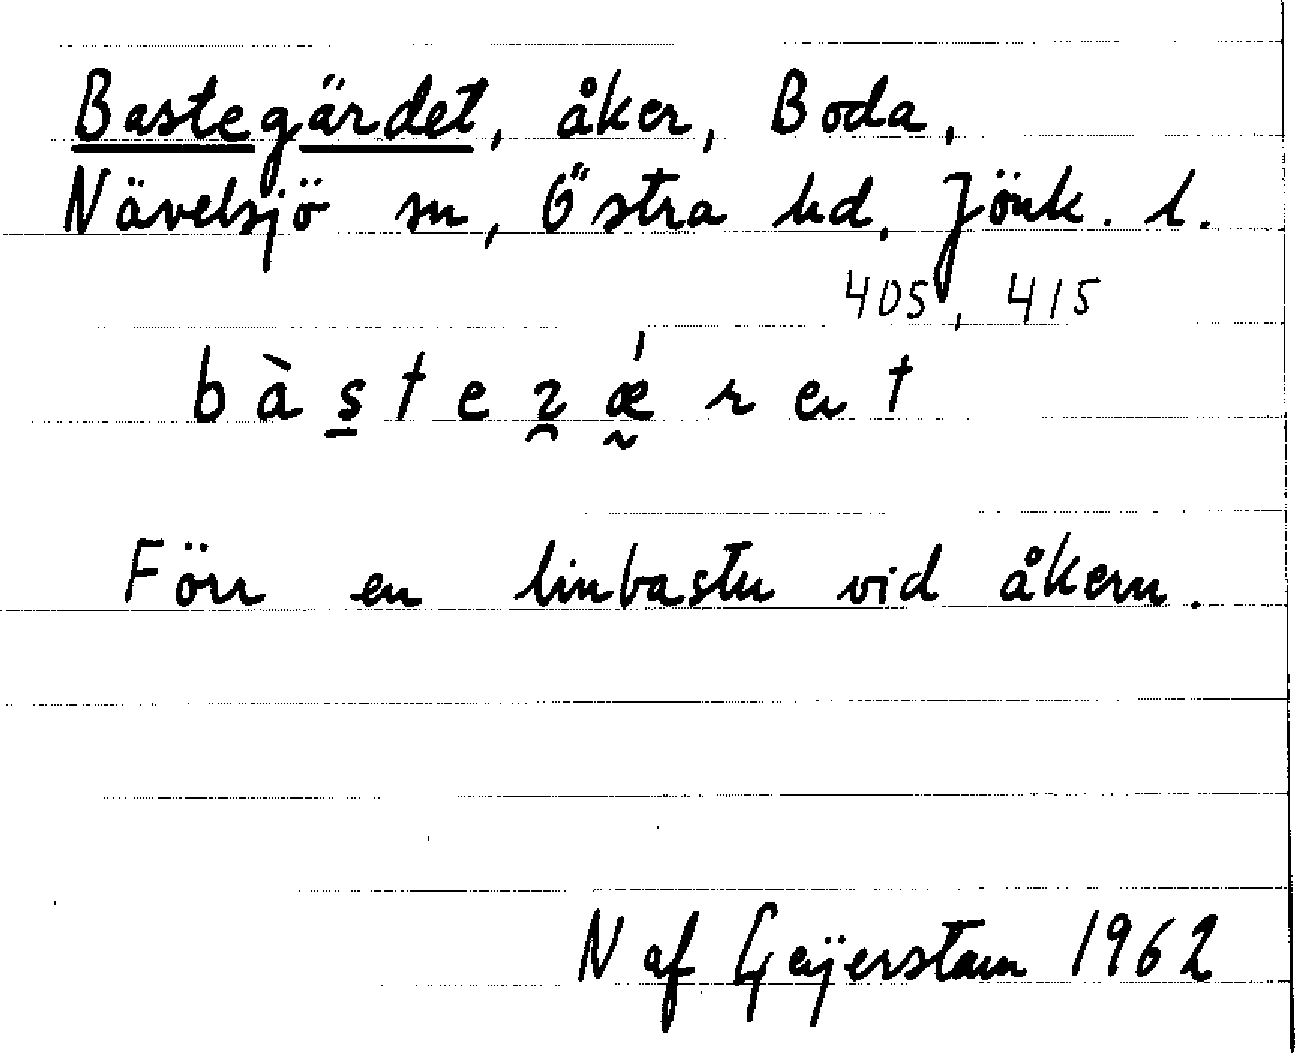 Bastegärdet, åker, Boda,
Nävelsjö sn, Östra hd, Jönk. l.
405, 415
Förr en linbastu vid åkern.
N af Geijerstam 1962